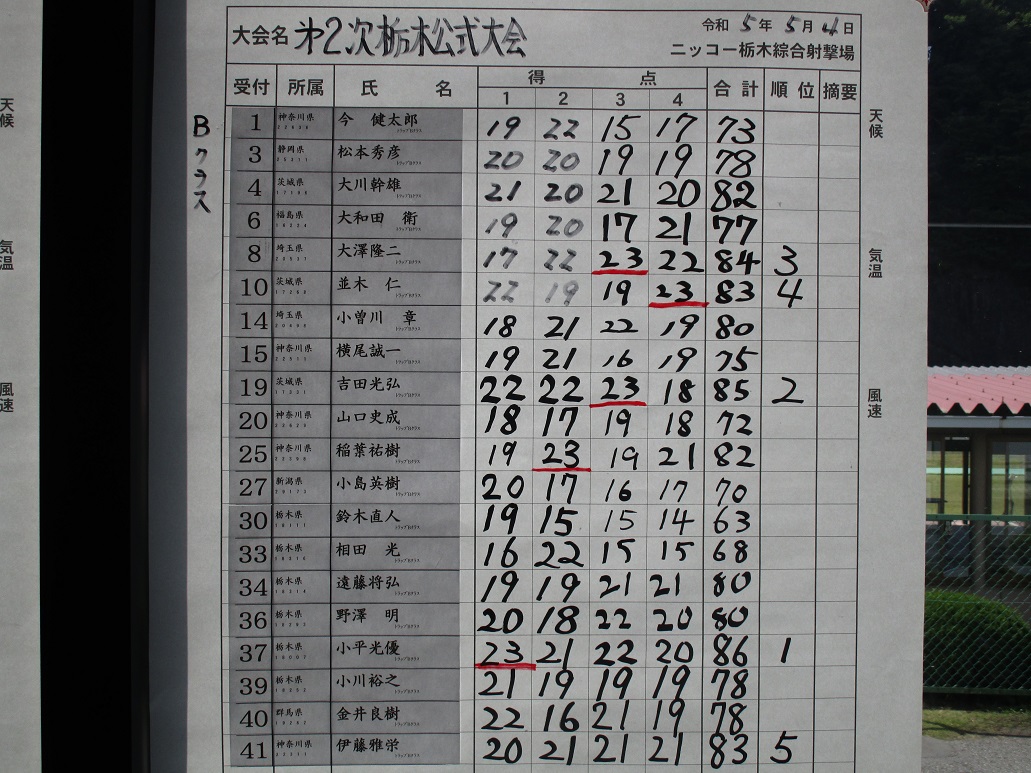 大会名 才2次栃木公式大会
令和 5年 5月 4日
ニッコー栃木綜合射撃場
受付 所属 氏 名 得 点 合計 順位 摘要
1 2 3 4
Bクラス
1 神奈川県 今 健太郎 19 22 15 17 73
3 静岡県 松本秀彦 20 20 19 19 78
4 茨城県 大川幹雄 21 20 21 20 82
6 福島県 大和田 衛 19 20 17 21 77
8 埼玉県 大澤隆二 17 22 23 22 84 3
10 茨城県 並木 仁 22 19 19 23 83 4
14 埼玉県 小曽川 章 18 21 22 19 80
15 神奈川県 横尾誠一 19 21 16 19 75
19 茨城県 吉田光弘 22 22 23 18 85 2
20 神奈川県 山口史成 18 17 19 18 72
25 神奈川県 稲葉祐樹 19 23 19 21 82
27 新潟県 小島英樹 20 17 16 17 70
30 栃木県 鈴木直人 19 15 15 14 63
33 栃木県 相田 光 16 22 15 15 68
34 栃木県 遠藤将弘 19 19 21 21 80
36 栃木県 野澤 明 20 18 22 20 80
37 栃木県 小平光優 23 21 22 20 86 1
39 栃木県 小川裕之 21 19 19 19 78
40 群馬県 金井良樹 22 16 21 19 78
41 神奈川県 伊藤雅栄 20 21 21 21 83 5
天候
気温
風速
天候
気温
風速